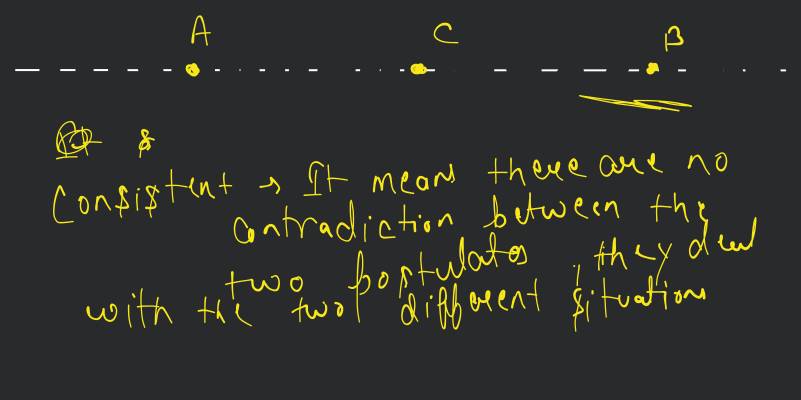 A C B
Consistent → It means there are no
contradiction between the
two postulates, they deal
with the two different situations